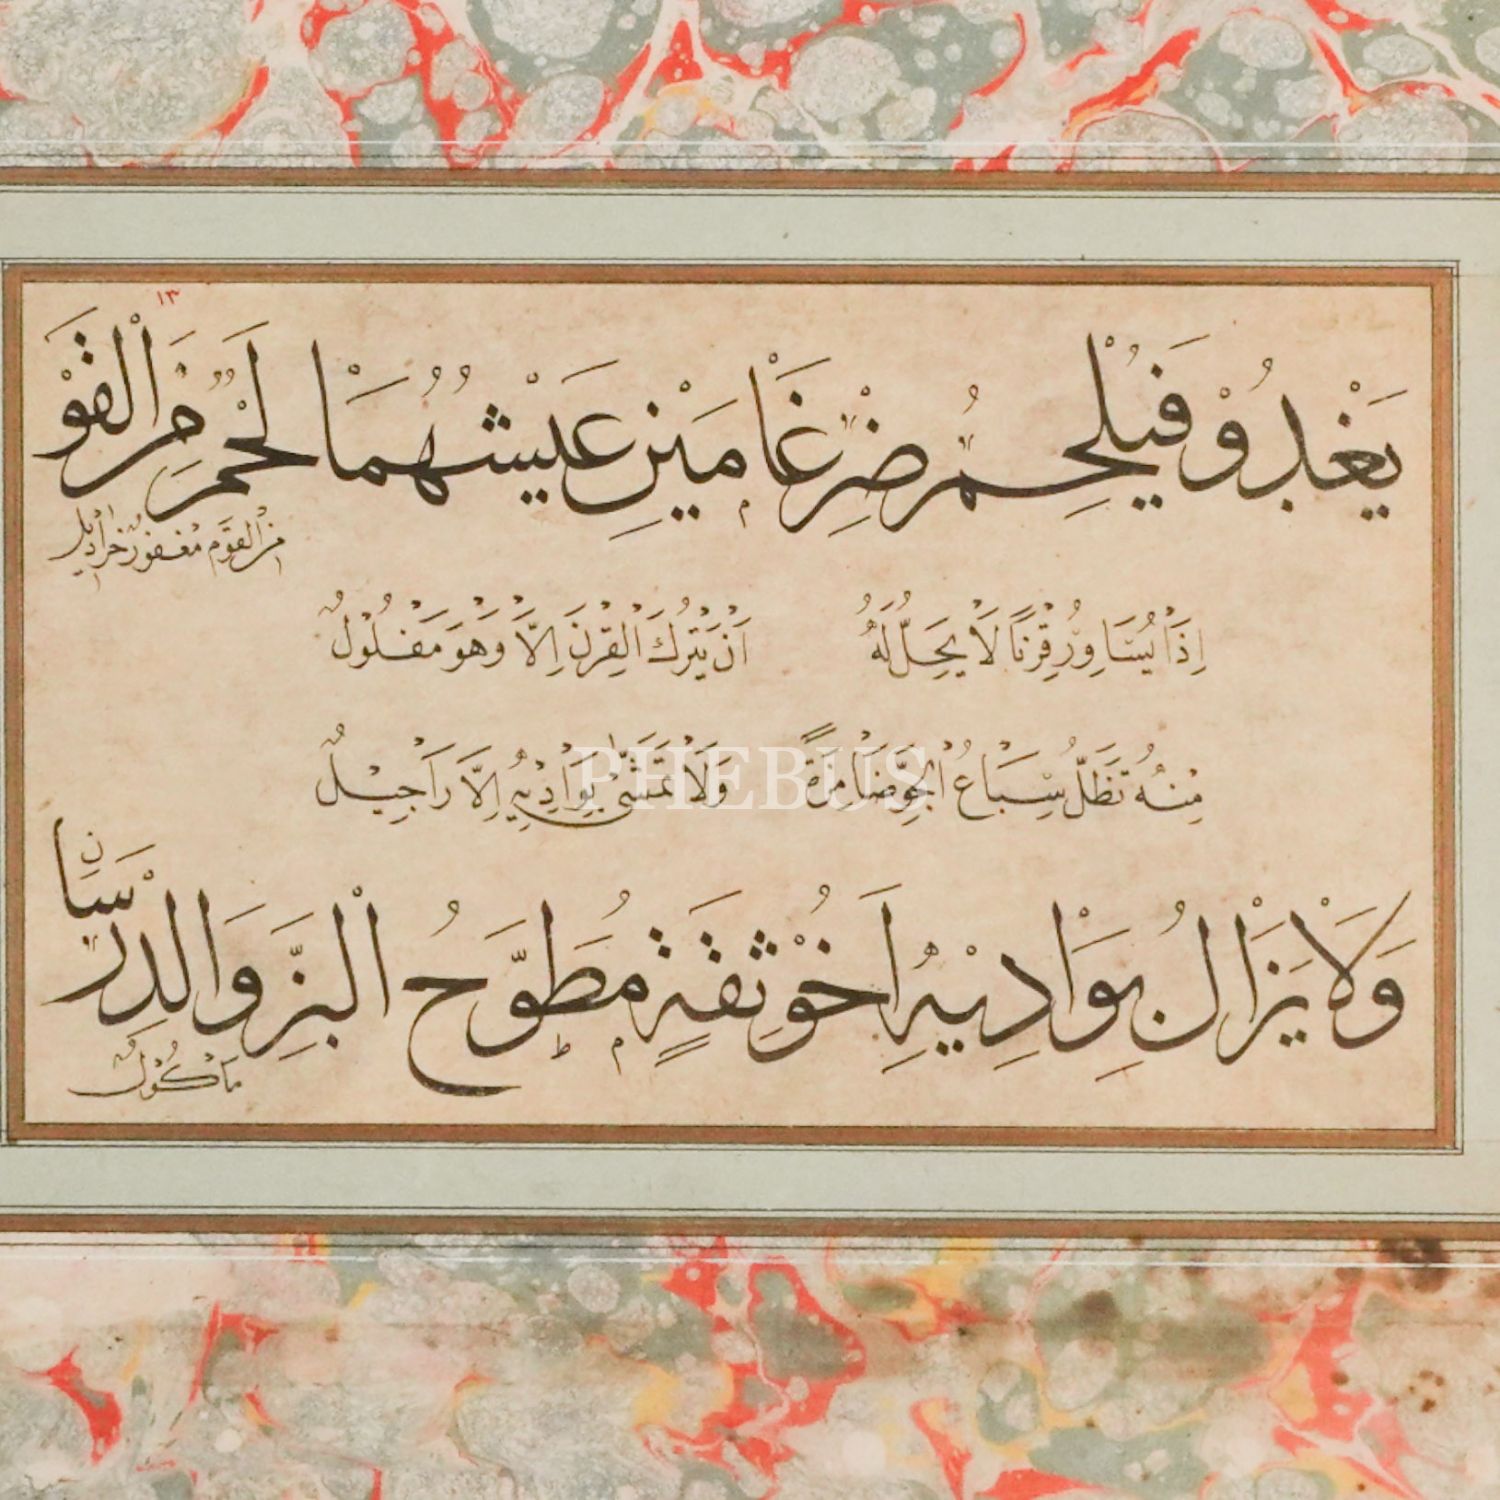 ١٣
يَغْدُوْ فَيُلْحِمُ ضِرْغَامَيْنِ عَيْشُهُمَا لَحْمٌ مِنَ الْقَوْ
مِنَ الْقَوْمِ مَعْفُورٌ خَرَادِيلُ
إِذَا يُسَاوِرُ قِرْنًا لَا يَحِلُّ لَهُ أَنْ يَتْرُكَ الْقِرْنَ إِلَّا وَهْوَ مَفْلُولٌ
مِنْهُ تَظَلُّ سِبَاعُ الْجَوِّ ضَامِزَةً وَلَا تَمَشَّى بِوَادِيهِ إِلَّا رَاجِيلٌ
وَلَا يَزَالُ بِوَادِيهِ أَخُوْ ثِقَةٍ مُطَوَّحُ الْبَزِّ وَالدِّرْسَانِ
مَأْكُوْلٌ
PHEBUS